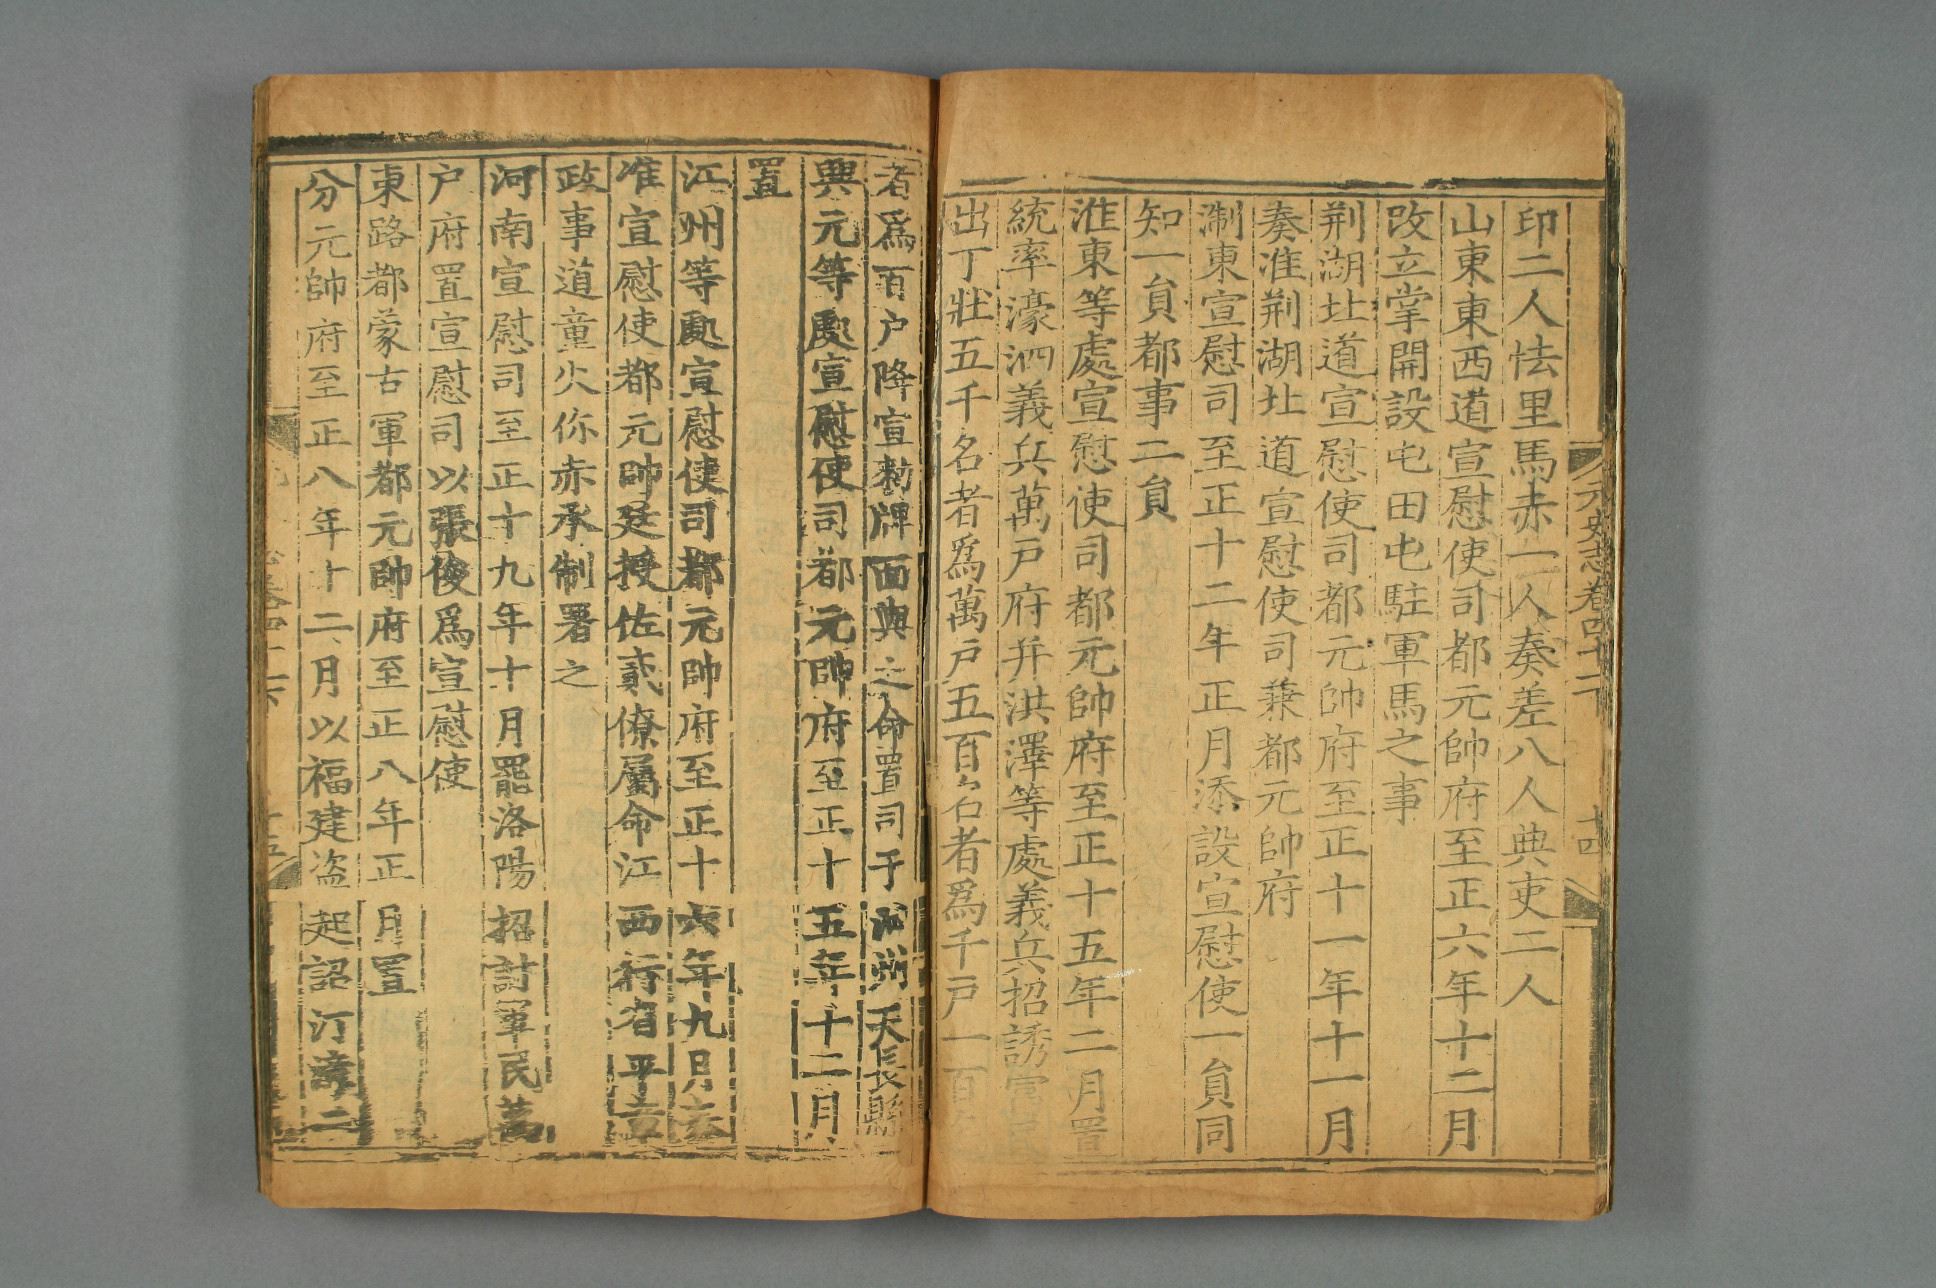 元史志卷四十二下
十四
印二人怯里馬赤一人奏差八人典吏二人
山東東西道宣慰使司都元帥府至正六年十二月
改立掌開設屯田屯駐軍馬之事
荆湖北道宣慰使司都元帥府至正十一年十一月
奏准荆湖北道宣慰使司兼都元帥府
淛東宣慰司至正十二年正月添設宣慰使一員同
知一員都事二員
淮東等處宣慰使司都元帥府至正十五年二月置
統率濠泗義兵萬戸府并洪澤等處義兵招誘
出丁壯五千名者爲萬戸五百名者爲千戸一百
者爲百户降宣勑牌面與之命置司于泗州天長縣
興元等處宣慰使司都元帥府至正十五年十二月
置
江州等處宣慰使司都元帥府至正十六年九月立
准宣慰使都元帥廷授佐貳僚屬命江西行省平章
政事道童火你赤承制署之
河南宣慰司至正十九年十月罷洛陽招討軍民萬
户府置宣慰司以張俊爲宣慰使
東路都蒙古軍都元帥府至正八年正月置
分元帥府至正八年十二月以福建盜起詔汀漳二